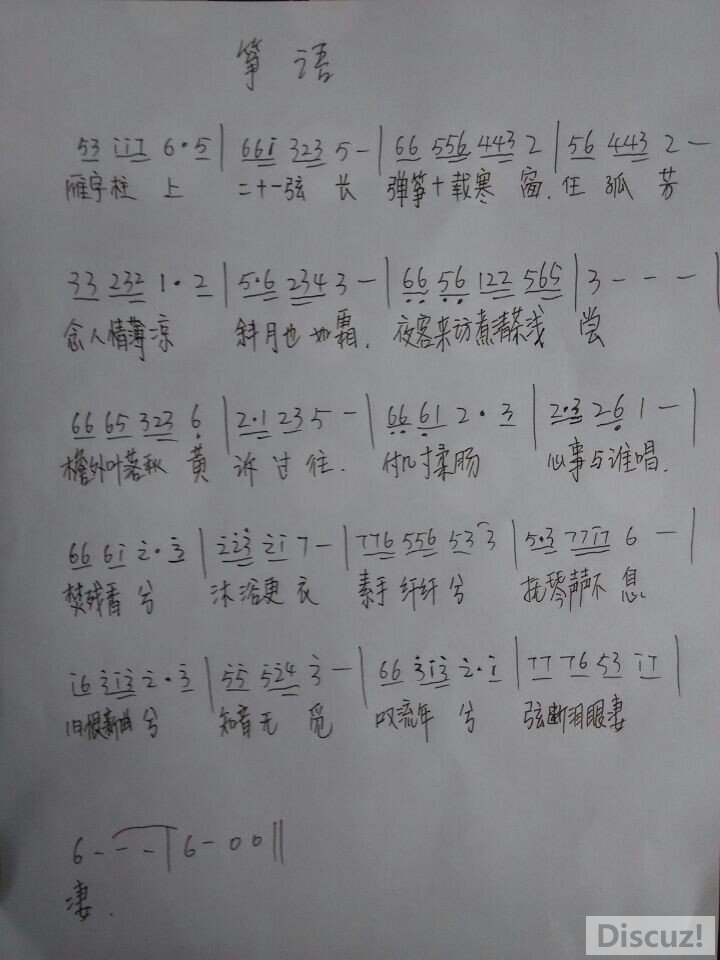 筝语
53 i i 7 6·5 | 66i 323 5 - | 66 556 443 2 | 56 443 2 -
雁字柱 上 二十一弦 长 弹筝十载寒 窗. 任 孤 芳
33 232 1·2 | 5·6 234 3 - | 66 56 122 565 | 3 - - - |
念人情薄凉 斜月也如霜. 夜客来访煮清茶浅 尝
66 65 323 6 | 2·1 235 - | 66 61 2·3 | 2·3 26 1 - |
檐外叶落秋 黄 诉过往. 付几寸柔肠 心事与谁唱.
66 6i 2·3 | 223 2i 7 - | 776 556 53 3 | 5·3 77i7 6 - |
焚残香 兮 沐浴更 衣 素手纤纤 兮 抚琴声声不 息.
i6 3i3 2·3 | 55 524 3 - | 66 3i3 2·i | 77 76 53 i7 |
旧恨新曲 兮 知音无 觅 叹流年 兮 弦断泪眼凄
6 - - - | 6 - 0 0 ||
凄.
Discuz!